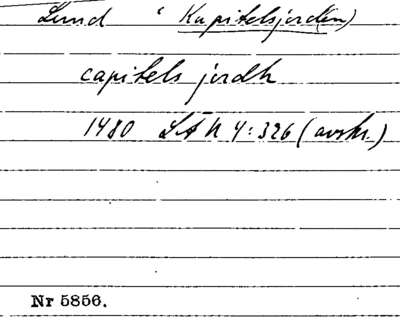 Lund ‘ Kapitelsjord(en)
capitels jordh
1480 LÄU 4:326 (avskr.)
Nr 5856.